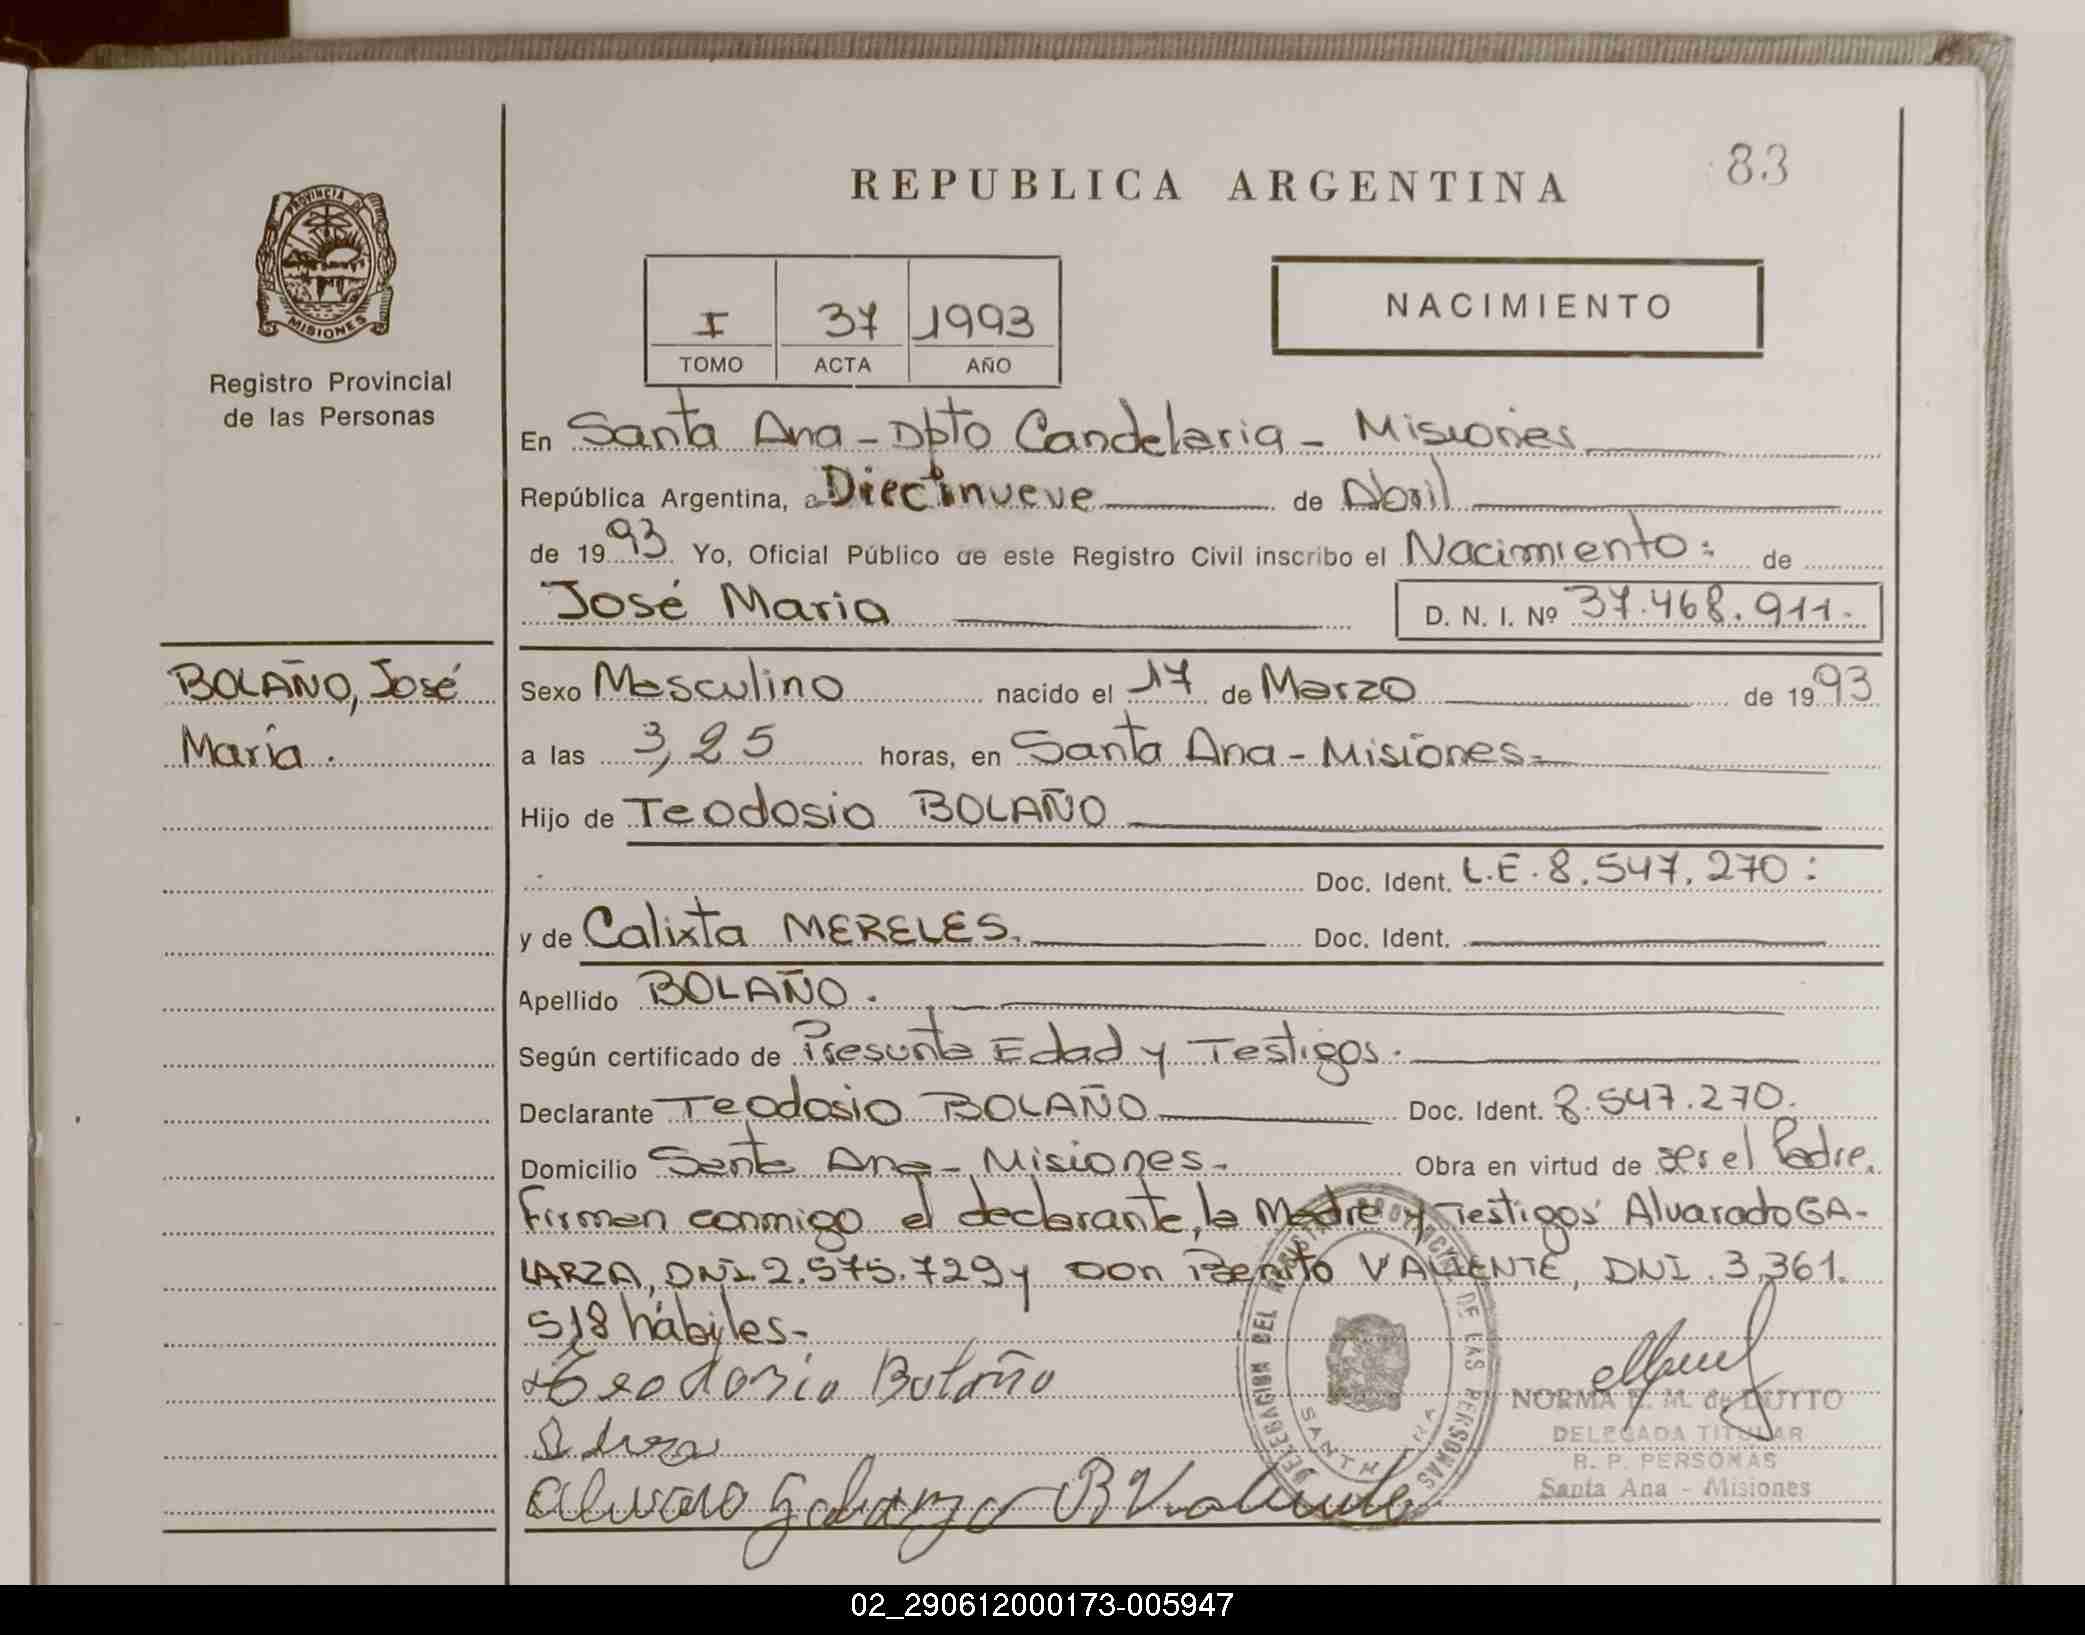 83
REPUBLICA ARGENTINA
PROVINCIA DE
MISIONES
Registro Provincial
de las Personas
I 37 1993
TOMO ACTA AÑO
NACIMIENTO
En Santa Ana - Dpto Candelaria - Misiones
República Argentina, a Diecinueve de Abril
de 1993 Yo, Oficial Público de este Registro Civil inscribo el Nacimiento: de
José Maria D. N. I. Nº 37.468.911.
BOLAÑO, José
María.
Sexo Masculino nacido el 17 de Marzo de 1993
a las 3,25 horas, en Santa Ana - Misiones
Hijo de Teodosio BOLAÑO
Doc. Ident. L.E. 8.547.270:
y de Calixta MERELES. Doc. Ident.
Apellido BOLAÑO.
Según certificado de Presunta Edad y Testigos.
Declarante Teodosio BOLAÑO Doc. Ident. 8.547.270.
Domicilio Santa Ana - Misiones. Obra en virtud de ser el Padre.
Firman conmigo el declarante, la Madre y Testigos Alvarado GA-
LARZA, DNI. 2.575.729 y Don Benito VALIENTE, DNI. 3.361.
518 hábiles-
Teodosio Bolaño
Galarza B Valiente
DELEGACION DEL REGISTRO PROVINCIAL DE LAS PERSONAS
SANTA ANA
NORMA E. M. de DUTTO
DELEGADA TITULAR
R. P. PERSONAS
Santa Ana - Misiones
02_290612000173-005947